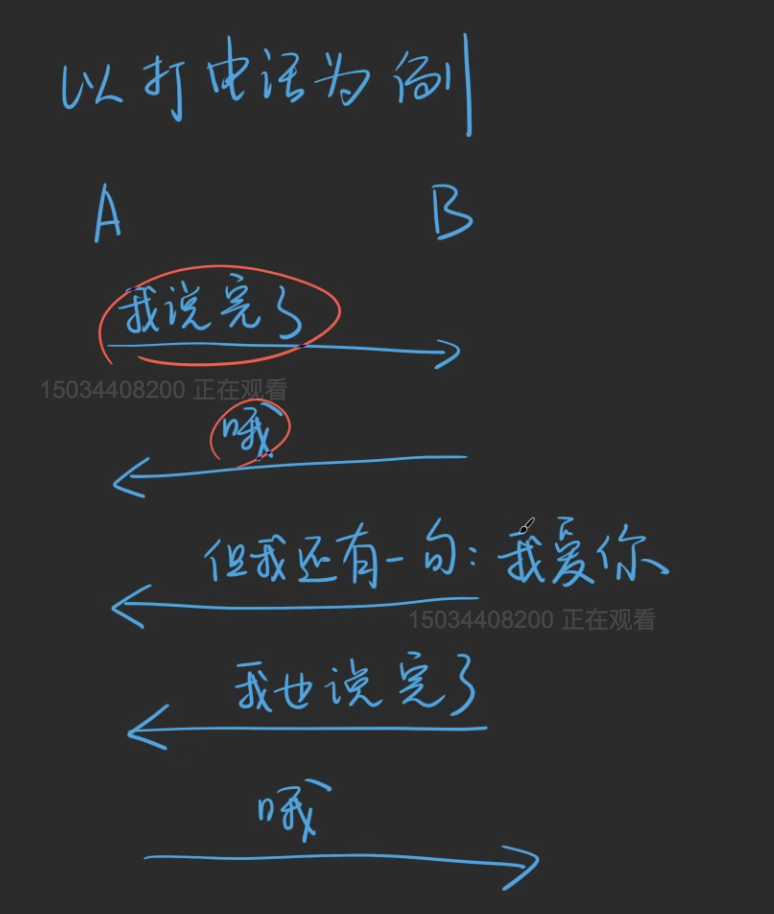 以打电话为例
A B
我说完了
15034408200 正在观看
哦
但我还有一句：我爱你
15034408200 正在观看
我也说完了
哦